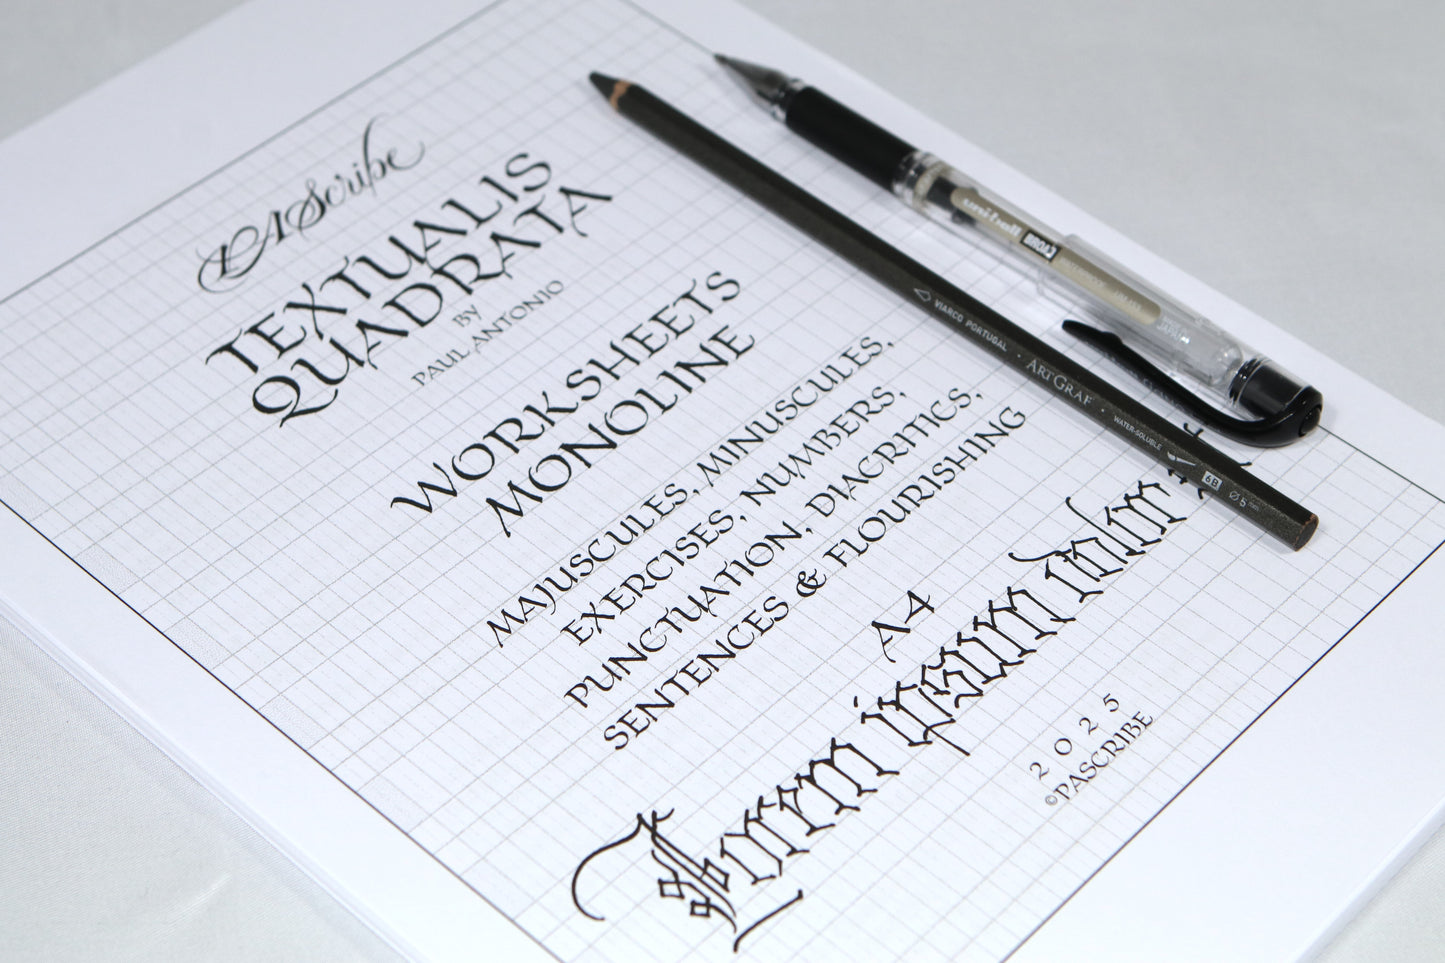 PAScribe
TEXTUALIS
QUADRATA
BY
PAUL ANTONIO
WORKSHEETS
MONOLINE
MAJUSCULES, MINUSCULES,
EXERCISES, NUMBERS,
PUNCTUATION, DIACRITICS,
SENTENCES & FLOURISHING
A4
Lorem ipsum dolum
2025
©PASCRIBE
uni-ball BROAD
JAPAN
VIARCO PORTUGAL · ARTGRAF · WATER-SOLUBLE 6B Ø 5 mm